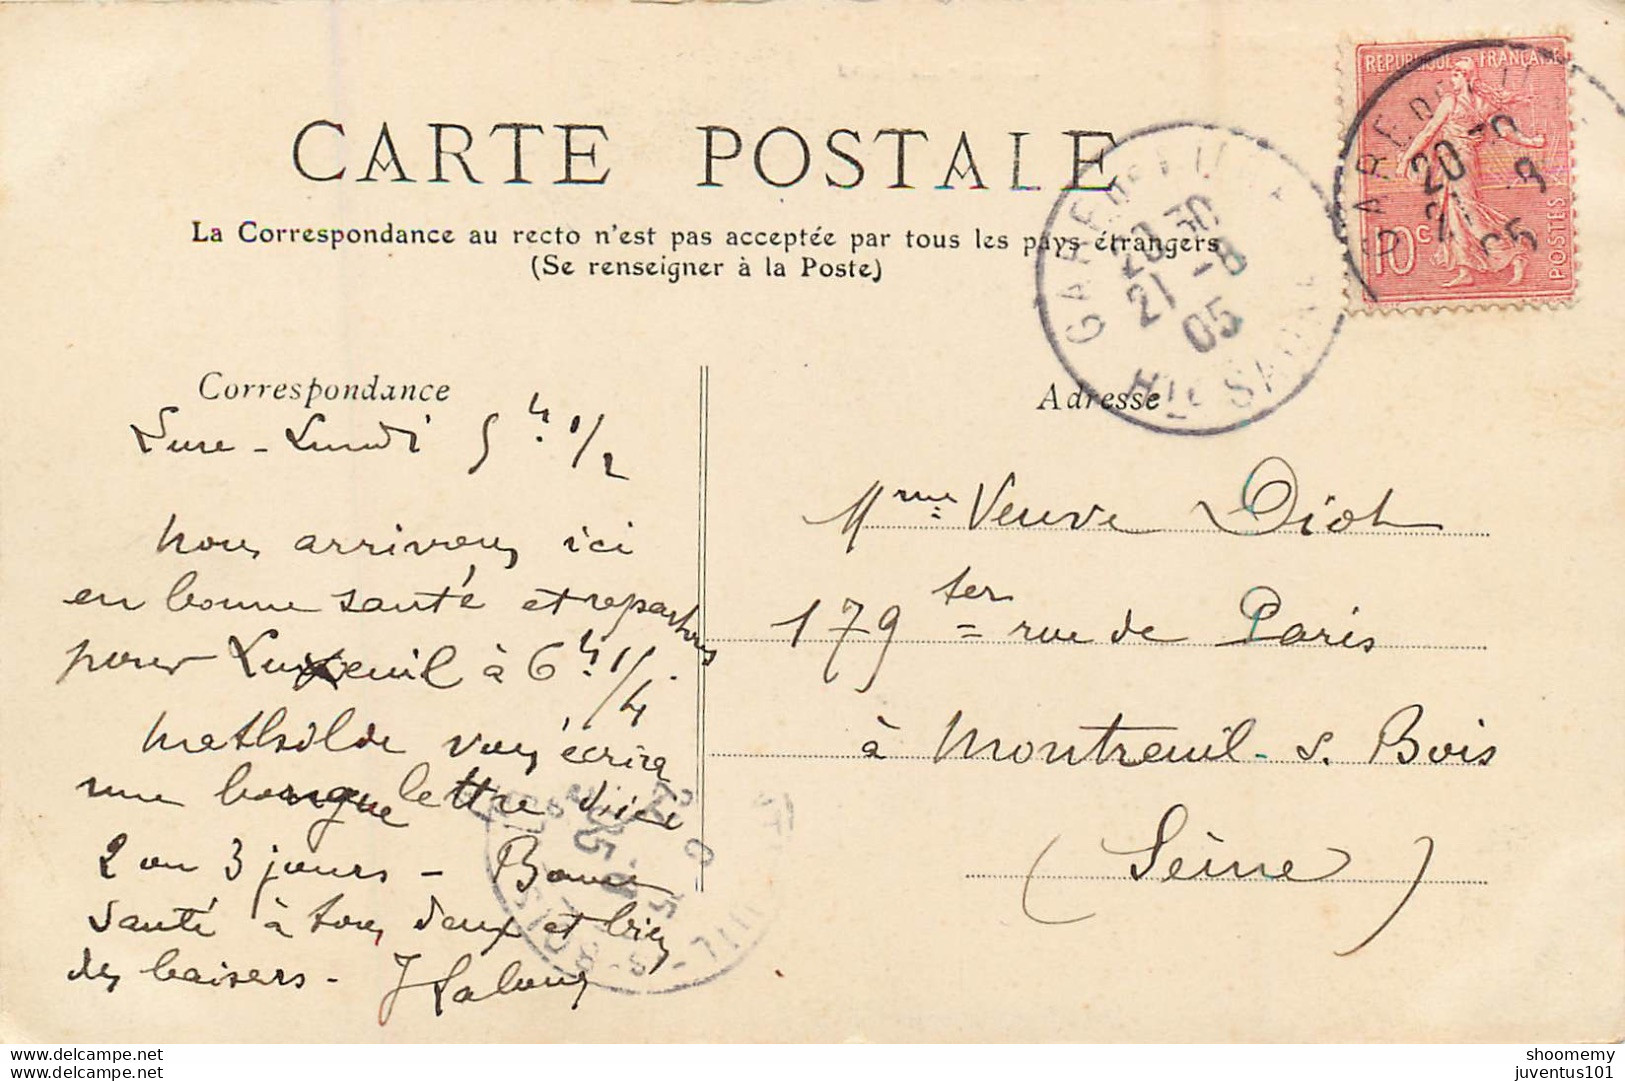 CARTE POSTALE
La Correspondance au recto n'est pas acceptée par tous les pays étrangers
(Se renseigner à la Poste)
REPUBLIQUE FRANÇAISE
10c
POSTES
GARE DE
20 30
21 -8
05
GARE DE LURE
20 30
21 -8
05
Hte SAONE
Correspondance
Lure - Lundi 5h 1/2
nous arrivons ici
en bonne santé et repartons
pour Luxeuil à 6h 1/4.
Mathilde vous écrira
une longue lettre d'ici
2 ou 3 jours - Bonne
santé à tous deux et bien
des baisers -
Adresse
Mme Veuve Diot
179 ter rue de Paris
à Montreuil-s. Bois
(Seine)
Ed. elcampe.com
Ed. elcampe.com
shoomemy
juventus101